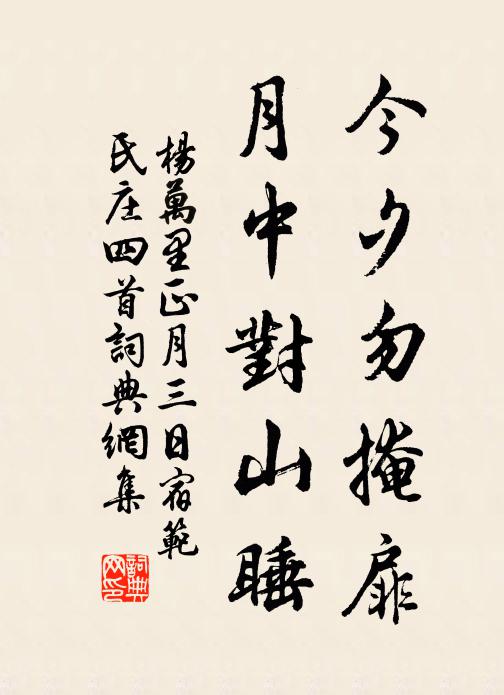 今夕勿掩扉
月中對山睡
楊萬里正月三日宿範
氏庄四首詞典網集
詞典
网印